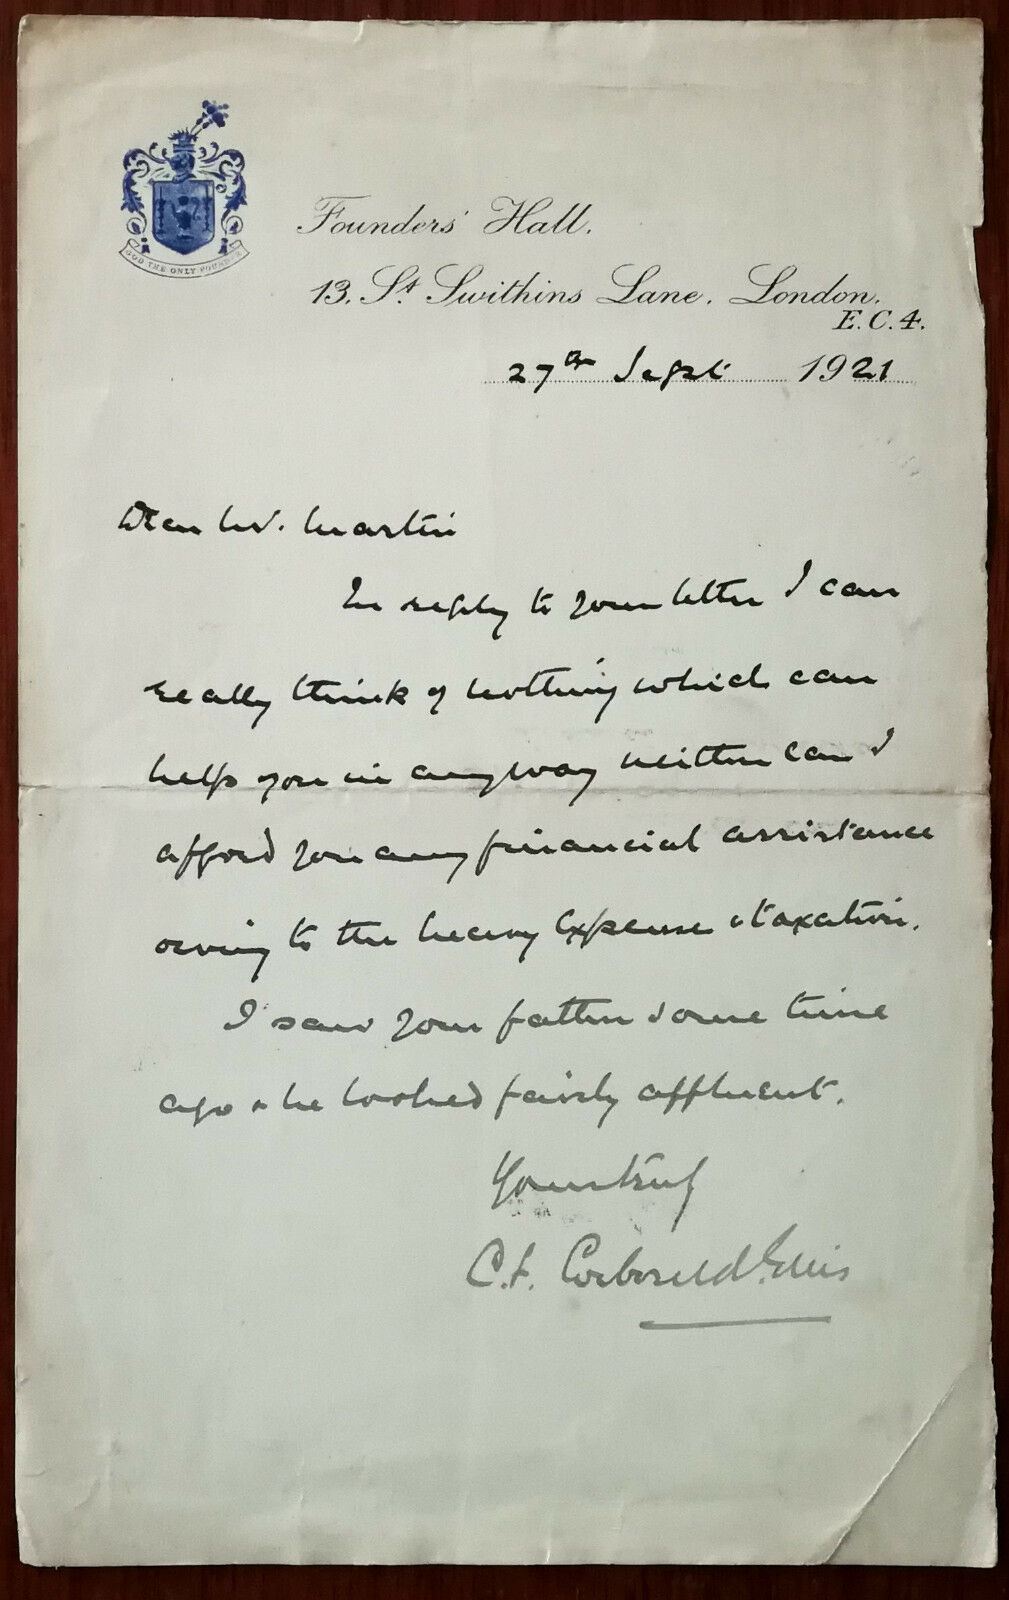 GOD THE ONLY FOUNDER
Founders' Hall.
13, St. Swithins Lane, London.
E.C.4.
27th Sept 1921
Dear Mr. Martin
In reply to your letter I can
really think of nothing which can
help you in anyway neither can I
afford you any financial assistance
owing to the heavy expense & taxation.
I saw your father some time
ago & he looked fairly affluent.
Yours truly
C.F. Corbould-Ellis